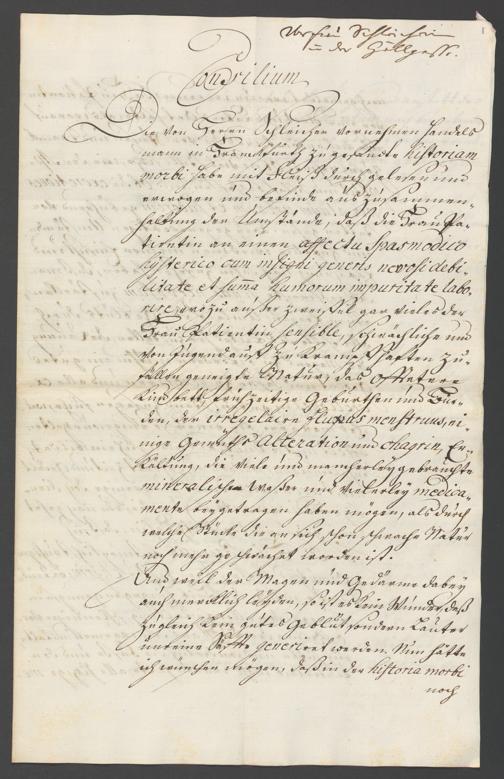 Consilium
Die von Herrn Schleicher vornehmen Handels
mann in Franckfurth zugesandte historiam
morbi habe mit Fleiß durchgelesen und
erwogen und befinde aus Zusammen-
haltung der Umstände, daß die Frau Pa-
tientin an einen affectu spasmodico
hysterico cum insigni generis nervosi debi-
litate et summa humorum impuritate labo-
rire, wozu ausser Zweiffel gar vieles der
Frau Patientin sensible, schwächliche und
von Jugend auff zu Krampfhafften Zu-
fällen geneigte Natur, das öfftere
Kindbett, frühzeitige Geburthen und
den, der irregulaire fluxus menstruus, ei-
nige Gemüths Alteration und chagrin, Er-
kältung, die viele und mancherley gebrauchte
mineralische Waßer und vielerley medica-
mente beygetragen haben mögen, als durch
welche Stücke die an sich schon schwache Natur
noch mehr geschwächet worden ist.
Und weil der Magen und Gedärme dabey
auch mercklich leyden, so ist es kein Wunder, daß
zugleich kein gutes Geblüt sondern lauter
unreine Säffte generiret werden. Nun hätte
ich wünschen mögen, daß in der historia morbi
noch